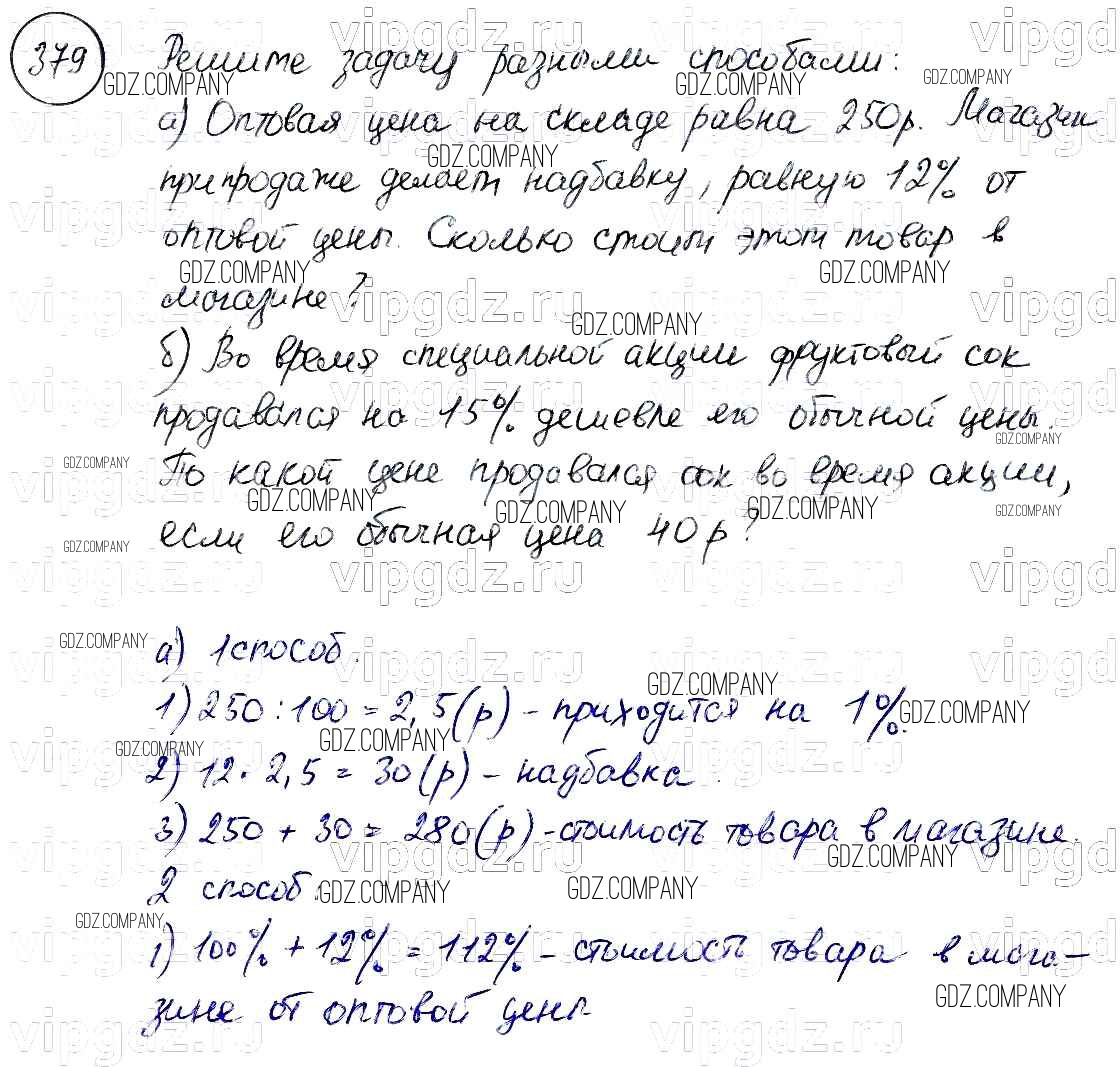 379 Решите задачу разными способами:
а) Оптовая цена на складе равна 250р. Магазин
при продаже делает надбавку, равную 12% от
оптовой цены. Сколько стоит этот товар в
магазине?
б) Во время специальной акции фруктовый сок
продавался на 15% дешевле его обычной цены.
По какой цене продавался сок во время акции,
если его обычная цена 40р?
а) 1 способ.
1) 250 : 100 = 2,5(р) - приходится на 1%.
2) 12 · 2,5 = 30(р) - надбавка.
3) 250 + 30 = 280(р) - стоимость товара в магазине.
2 способ.
1) 100% + 12% = 112% - стоимость товара в мага-
зине от оптовой цены